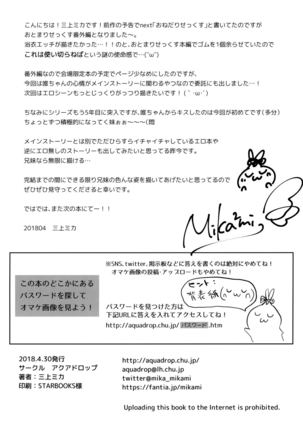 こんにちは！三上ミカです！前作の予告でnext「おねだりせっくす」と書いてたのですが
おとまりせっくす番外編となりました～。
浴衣エッチが描きたかった…！！のと、おとまりせっくす本編でゴムを1個余らせていたので
これは使い切らねばという謎の使命感で…(˘ω˘)
番外編なので会場限定本の予定でページ少なめにしたのですが、
今回は誰ちゃんの心情がメインストーリーに関わるやつなので委託にも出しました…！
次回はエロシーンもっとじっくりがっつり描きたいです！(｀・ω・´)
ちなみにシリーズもう5年目に突入ですが、誰ちゃんからキスしたのは今回が初めてです(多分)
ちょっとずつ積極的になってく妹ぉぉ～～～(悶
メインストーリーとは別でただひたすらイチャイチャしているエロ本や
逆にエロ無しのストーリーも出してみたいと思ってる昨今です。
兄妹なら無限に描ける…
完結までの間にできる限り兄妹の色んな姿を描いてあげたいと思ってるので
ぜひぜひ見守ってくださると幸いです。
ではでは、また次の本にてー！！
201804 三上ミカ
Mikami
この本のどこかにある
パスワードを探して
オマケ画像を見よう！
※SNS、twitter、掲示板などに答えを書くのは絶対にやめてね！
オマケ画像の投稿・アップロードもやめてね！
ヒント：
背表紙
パスワードを見つけた方は
下記URLに答えを入れてアクセスしてね！
http://aquadrop.chu.jp/パスワード.htm
2018.4.30発行
サークル　アクアドロップ
著者：三上ミカ
印刷：STARBOOKS様
http://aquadrop.chu.jp/
aquadrop@lh.chu.jp
twitter@mika_mikami
https://fantia.jp/mikami
Uploading this book to the Internet is prohibited.